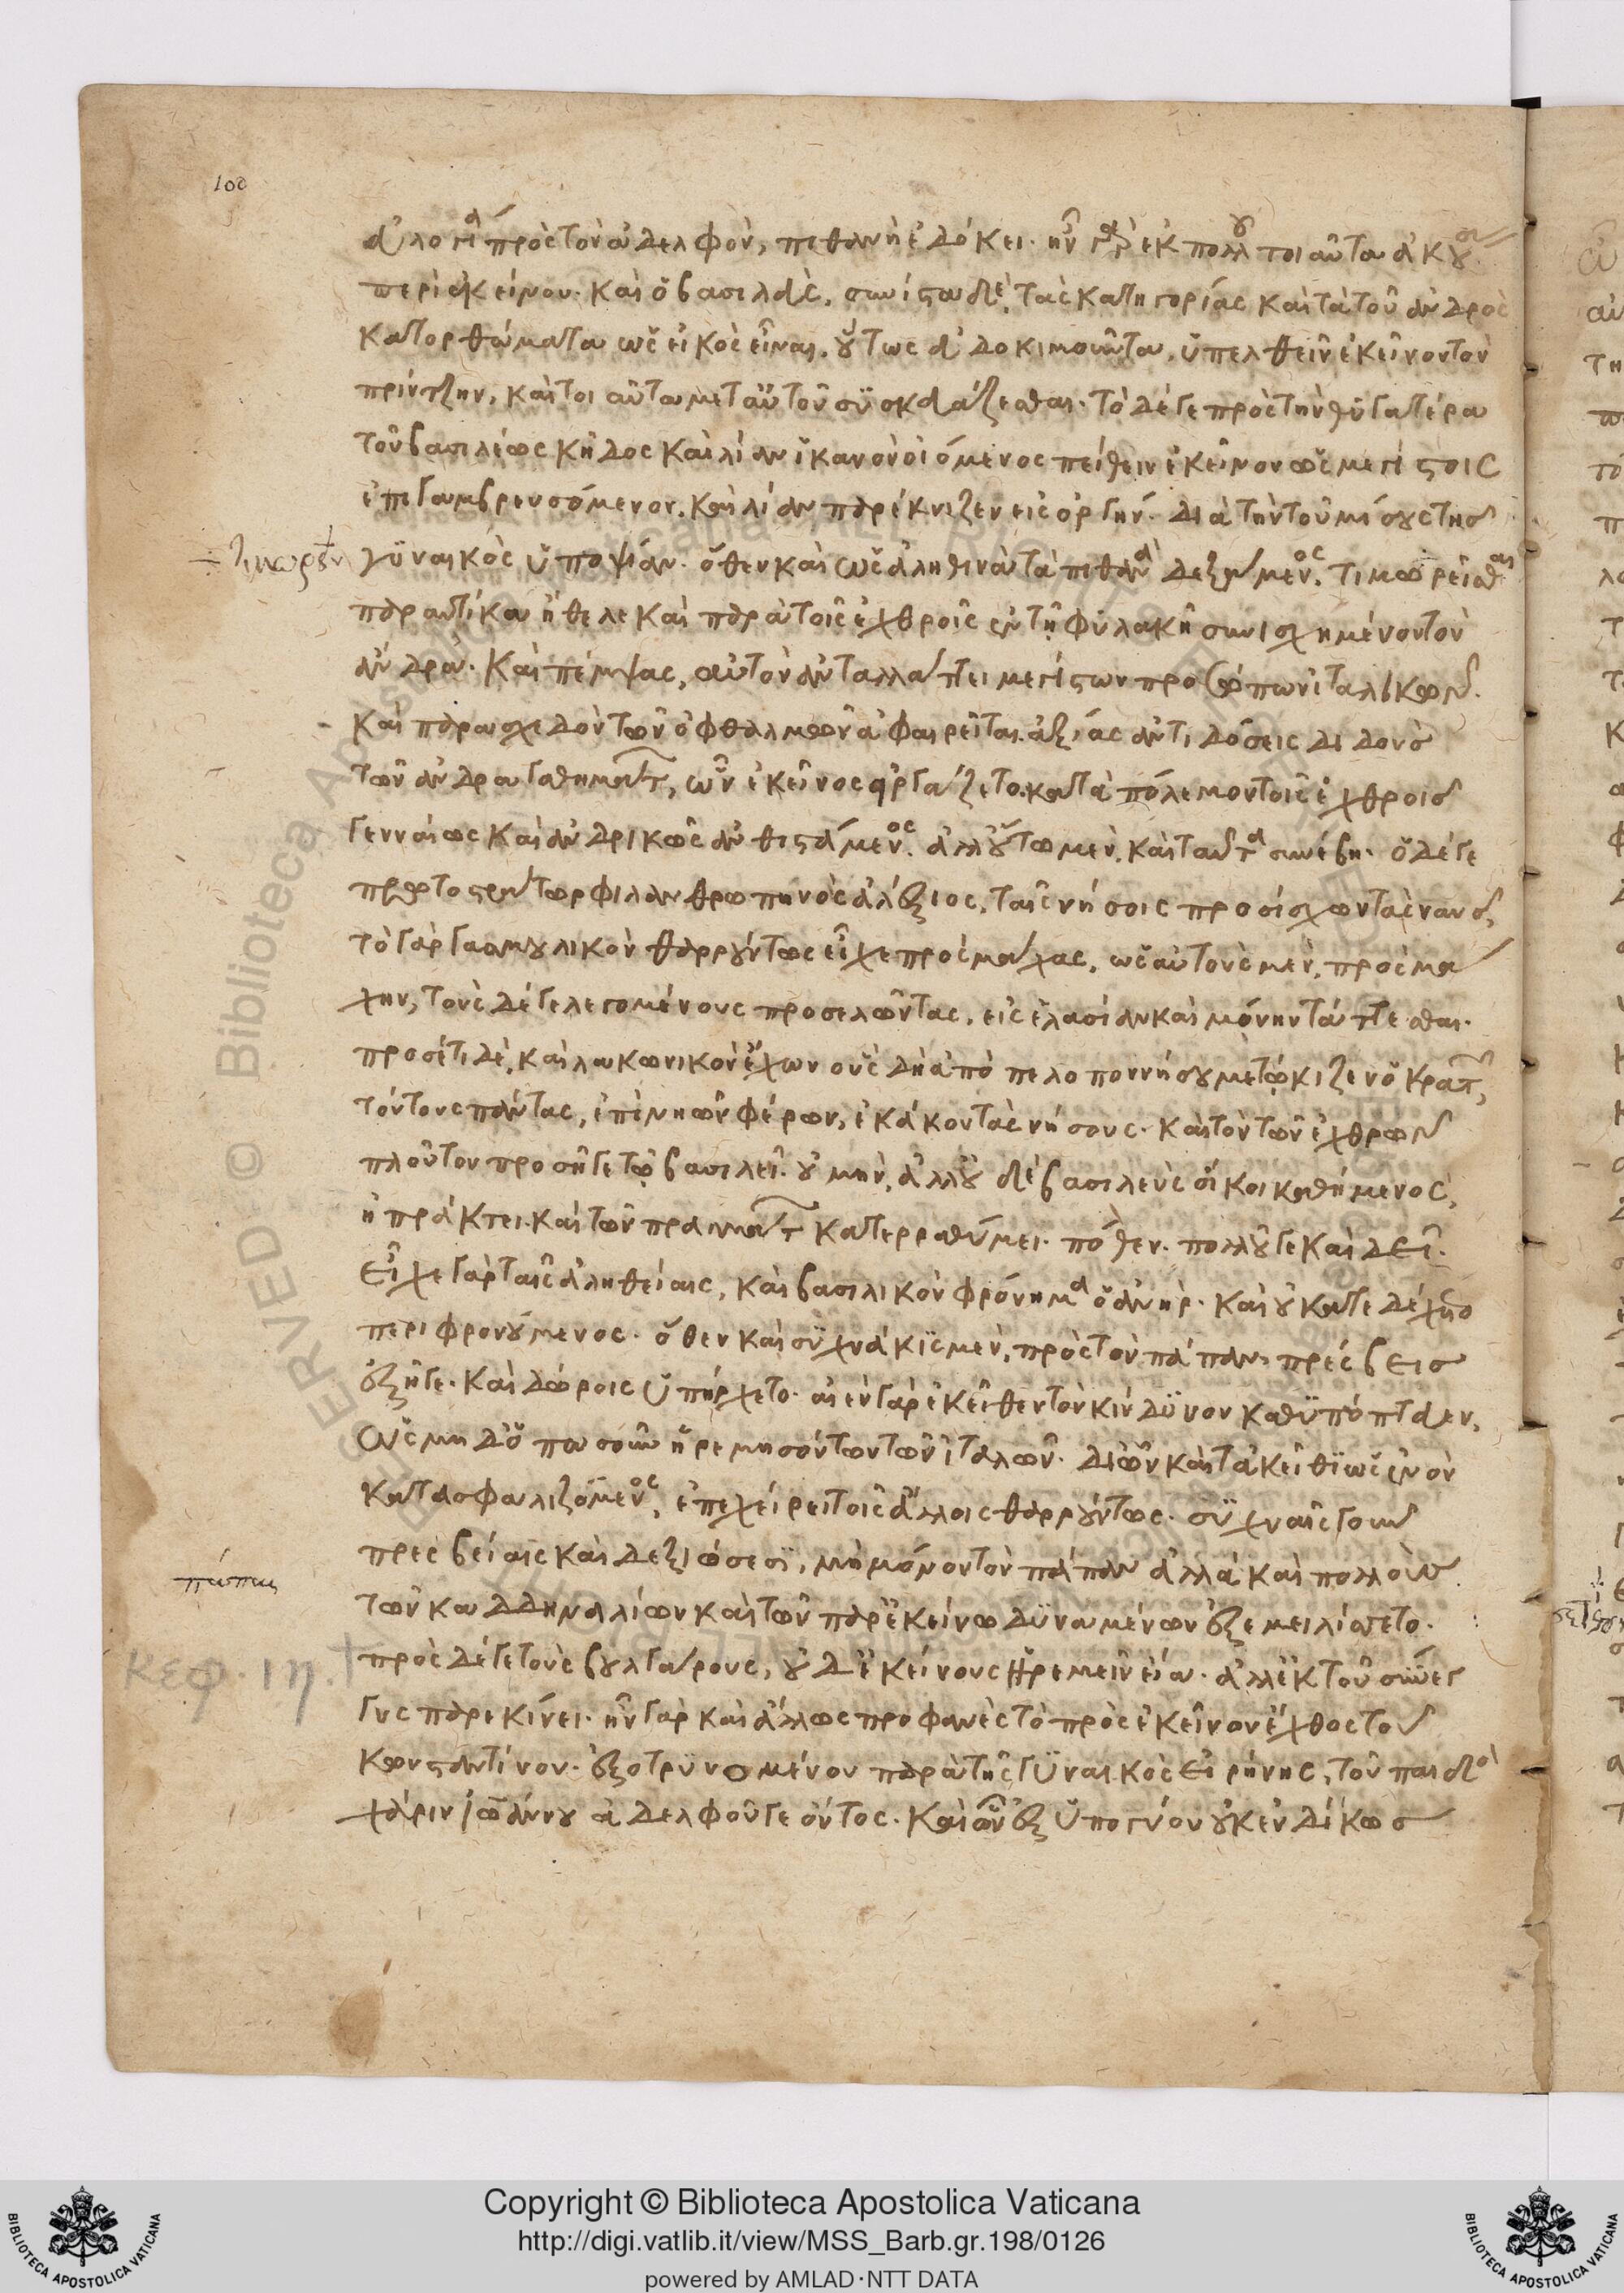 100
εὐλογία πρὸς τὸν ἀδελφὸν, πιθανὴ ἐδόκει. ἦν γὰρ ἐκ πολλοῦ τοιαῦτα ἀκούων
περὶ ἐκείνου. καὶ ὁ βασιλεὺς, συνίστα δὲ τὰς κατηγορίας καὶ τὰ τοῦ ἀνδρὸς
κατορθώματα ὡς εἰκὸς εἶναι, οὕτως εὐδοκιμοῦντα, ὑπελθεῖν ἐκεῖνον τὸν
πρίντζην, καὶ τοιαῦτα μετ' αὐτοῦ συσκευάζεσθαι. τὸ δέ γε πρὸς τὴν θυγατέρα
τοῦ βασιλέως κῆδος καὶ λίαν ἱκανὸν οἰόμενος πείθειν ἐκεῖνον ὡς μεγίστοις
ἐπιγαμβρευσόμενον. καὶ λίαν παρέκνιζεν εἰς ὀργήν. διὰ τὴν τοῦ μίσους τῆς
γυναικὸς ὑποψίαν. ὅθεν καὶ ὡς ἀληθινὰ τὰ πιθανὰ δεξάμενος, τιμωρεῖσθαι
παραυτίκα ἤθελε καὶ παρὰ τοῖς ἐχθροῖς ἐν τῇ φυλακῇ συνισχημένον τὸν
ἄνδρα. καὶ πέμψας, αὐτὸν ἀνταλλάττει μεγίστων προσώπων ἰταλικῶν.
καὶ παρασχεδὸν τῶν ὀφθαλμῶν ἀφαιρεῖται. ἀξίας ἀντιδόσεις διδοὺς
τῶν ἀνδραγαθημάτων, ὧν ἐκεῖνος εἰργάζετο κατὰ πόλεμον τοῖς ἐχθροῖς
γενναίως καὶ ἀνδρικῶς ἀνθιστάμενος. ἀλλ' οὕτω μὲν καὶ ταῦτα συνέβη. ὁ δέ γε
πρωτοστράτωρ φιλανθρωπηνὸς ἀλέξιος, ταῖς νήσοις προσίσχων τὰς ναῦς,
τὸ γὰρ γασμουλικὸν θαρρούντως εἶχε πρὸς μάχας, ὡς αὐτοὺς μὲν, πρὸς μά
χην, τοὺς δέ γε λεγομένους προσελῶντας, εἰς ἐλασίαν καὶ μόνην τάττεσθαι.
προσέτι δὲ, καὶ λακωνικὸν ἔχων οὓς δὴ ἀπὸ πελοποννήσου μετῴκιζεν ὁ κρατῶν,
τούτους πάντας, ἐπὶ νηῶν φέρων, ἐκάκου τὰς νήσους. καὶ τὸν τῶν ἐχθρῶν
πλοῦτον προσῆγε τῷ βασιλεῖ. οὐ μὴν, ἀλλ' οὐδὲ βασιλεὺς οἴκοι καθήμενος,
ἠπράκτει. καὶ τῶν πραγμάτων κατερραθύμει. πόθεν. πολλοῦ γε καὶ δεῖ.
εἶχε γὰρ ταῖς ἀληθείαις, καὶ βασιλικὸν φρόνημα ὁ ἀνήρ. καὶ οὐ κατεδέχετο
περιφρονούμενος. ὅθεν καὶ συχνάκις μὲν, πρὸς τὸν πάπαν, πρέσβεις
ἐξῆγε. καὶ δώροις ὑπήρχετο. αἰὲν γὰρ ἐκεῖθεν τὸν κίνδυνον καθυπόπτευεν,
ὡς μηδόπωσοῦν ἠρεμησόντων τῶν ἰταλῶν. διὸ οὖν καὶ τἀκεῖθι ὡς ἐνὸν
κατασφαλιζόμενος, ἐπεχείρει τοῖς ἄλλοις θαρρούντως. συχναῖς γοῦν
πρεσβείαις καὶ δεξιώσεσι, μὴ μόνον τὸν πάπαν ἀλλὰ καὶ πολλοὺς
τῶν καδδηναλίων καὶ τῶν παρ' ἐκείνῳ δυναμένων ἐξεμειλίσσετο.
πρὸς δέ γε τοὺς βουλγάρους, οὐδ' ἐκείνους ἠρεμεῖν εἴα. ἀλλ' ἐκ τοῦ σύνεγ
γυς παρεκίνει. ἦν γὰρ καὶ ἄλλως προφανὲς τὸ πρὸς ἐκεῖνον ἔχθος τοῦ
κωνσταντίνου. ἐξοτρυνομένου παρὰ τῆς γυναικὸς εἰρήνης, τοῦ παιδὸς
χάριν ἰωάννου ἀδελφοῦ γε ὄντος. καὶ οὖν ἐξ ὑπογύου οὐκ ἐνδίκως
πάπας
κεφ. ιη. †
Copyright © Biblioteca Apostolica Vaticana
http://digi.vatlib.it/view/MSS_Barb.gr.198/0126
powered by AMLAD·NTT DATA
BIBLIOTECA APOSTOLICA VATICANA
BIBLIOTECA APOSTOLICA VATICANA